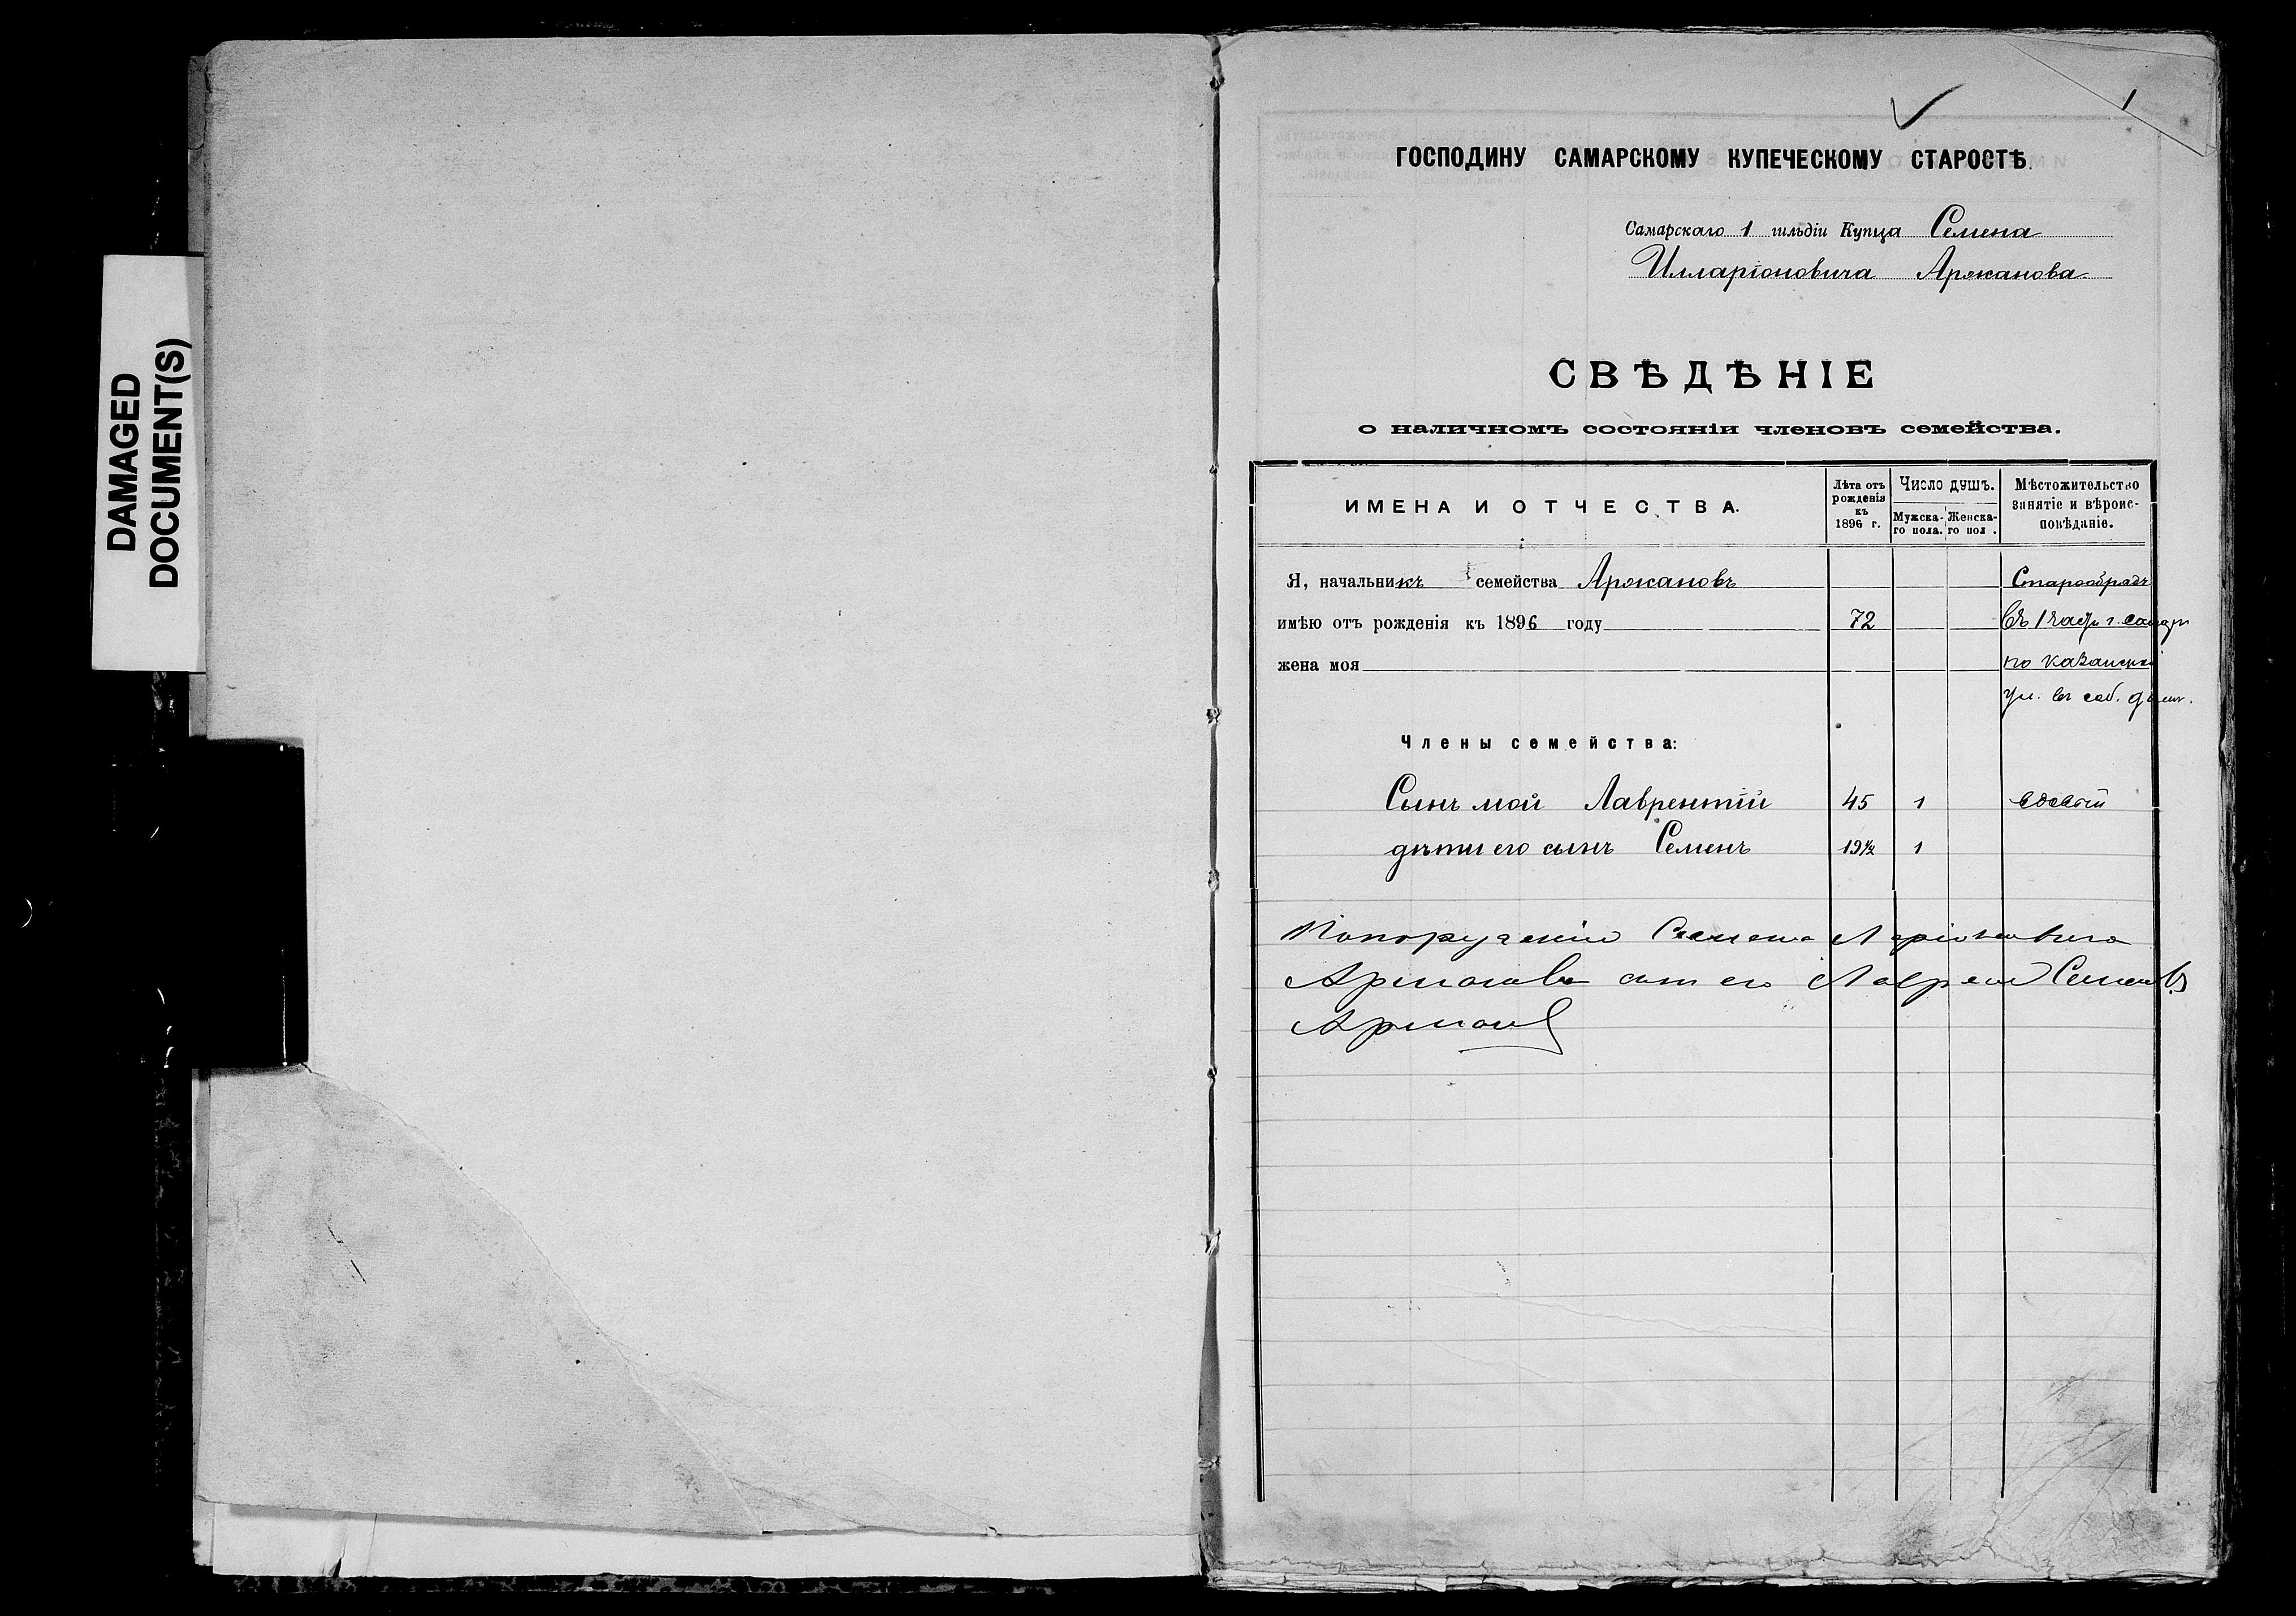 DAMAGED
DOCUMENT(S)
1
ГОСПОДИНУ САМАРСКОМУ КУПЕЧЕСКОМУ СТАРОСТѢ.
Самарскаго 1 гильдіи Купца Семена
Илларіоновича Аржанова
СВѢДѢНІЕ
о наличномъ состояніи членовъ семейства.
ИМЕНА И ОТЧЕСТВА.
Лѣта отъ рожденія къ 1896 г.
Число душъ.
Мужска-го пола.
Женска-го пол .
Мѣстожительство занятіе и вѣроис-повѣданіе.
Я, начальникъ семейства Аржановъ Старообрядч
имѣю отъ рожденія къ 1896 году 72 Въ 1 част г. Самары
жена моя по Казанской
ул. въ соб. домѣ.
Члены семейства:
Сынъ мой Лаврентій 45 1 вдовый
дѣти его сынъ Семенъ 19½ 1
По порученію Семена Ларіоновича
Аржанова сын его Лаврен Семенов
Аржанов